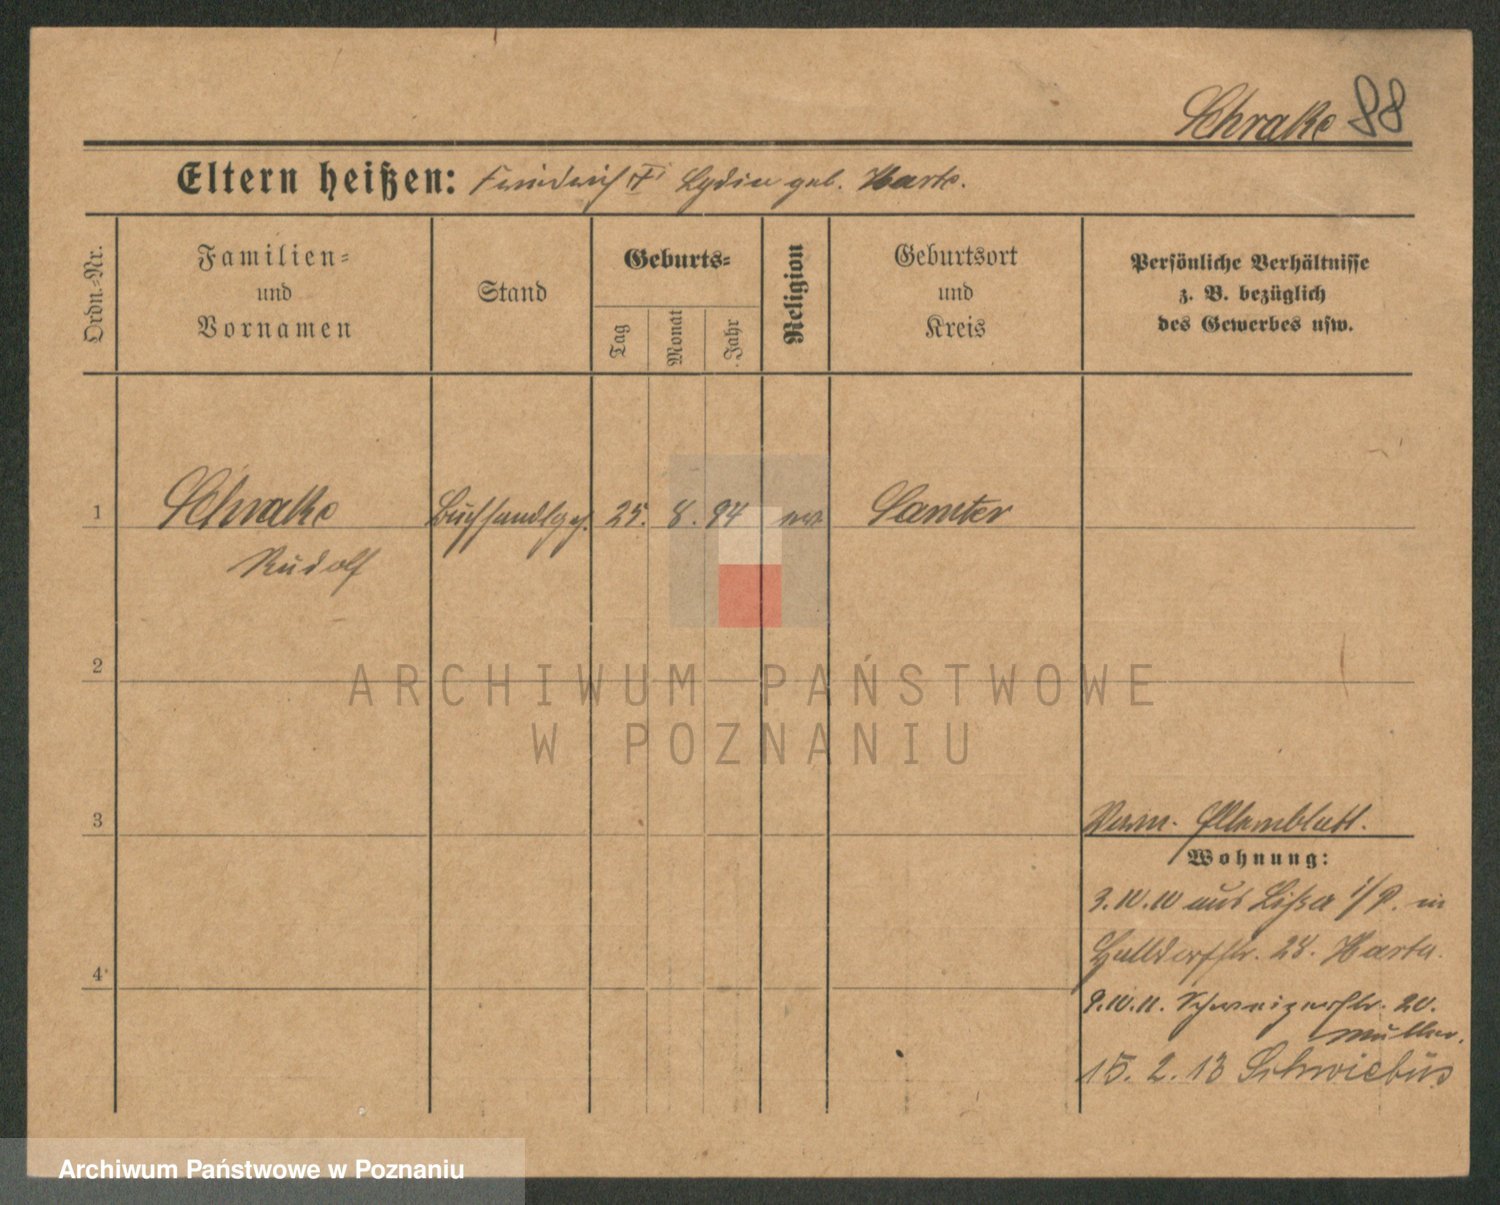 Schrake 88
Eltern heißen: Friedrich † Lydia geb. Harte.
Ordn.-Nr.
Familien-
und
Vornamen
Stand
Geburts-
Tag
Monat
Jahr
Religion
Geburtsort
und
Kreis
Persönliche Verhältnisse
z. B. bezüglich
des Gewerbes usw.
1 Schrake Buchhandlgeh. 25. 8. 94 ev Samter
Rudolf
2
ARCHIWUM PAŃSTWOWE
W POZNANIU
3
Pers. Elternblatt.
Wohnung:
3.10.10 aus Lissa i/P. in
28. Harte.
4
9.10.11. Schweizerstr. 20.
Müller.
15. 2. 13 Schwiebus
Archiwum Państwowe w Poznaniu